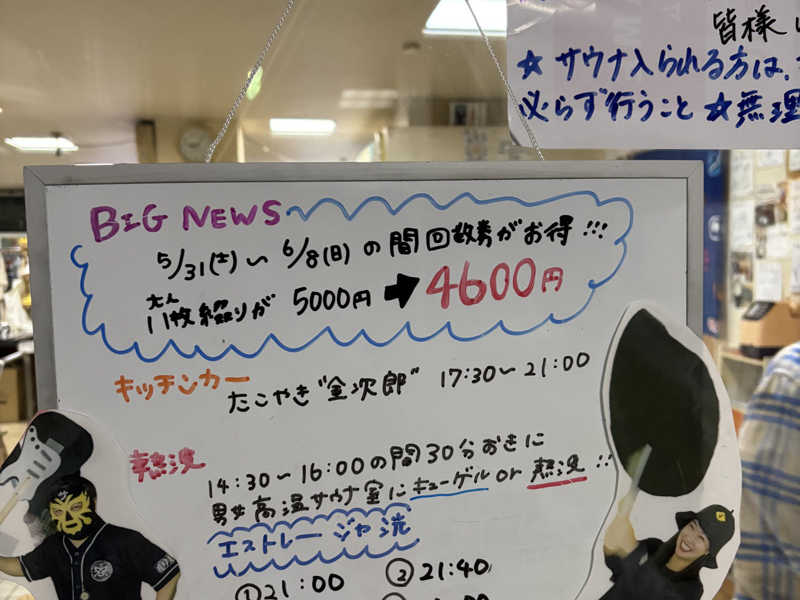 皆様
☆ サウナ入られる方は、
必らず行うこと ☆ 無理
BIG NEWS
5/31(土)～6/8(日)の間回数券がお得!!!
大人
11枚綴りが 5000円 ➡ 4600円
キッチンカー
たこやき"金次郎" 17:30～21:00
熱波
14:30～16:00の間30分おきに
男女高温サウナ室にキューゲル or 熱波!!
エストレージャ 洸
①21:00 ②21:40